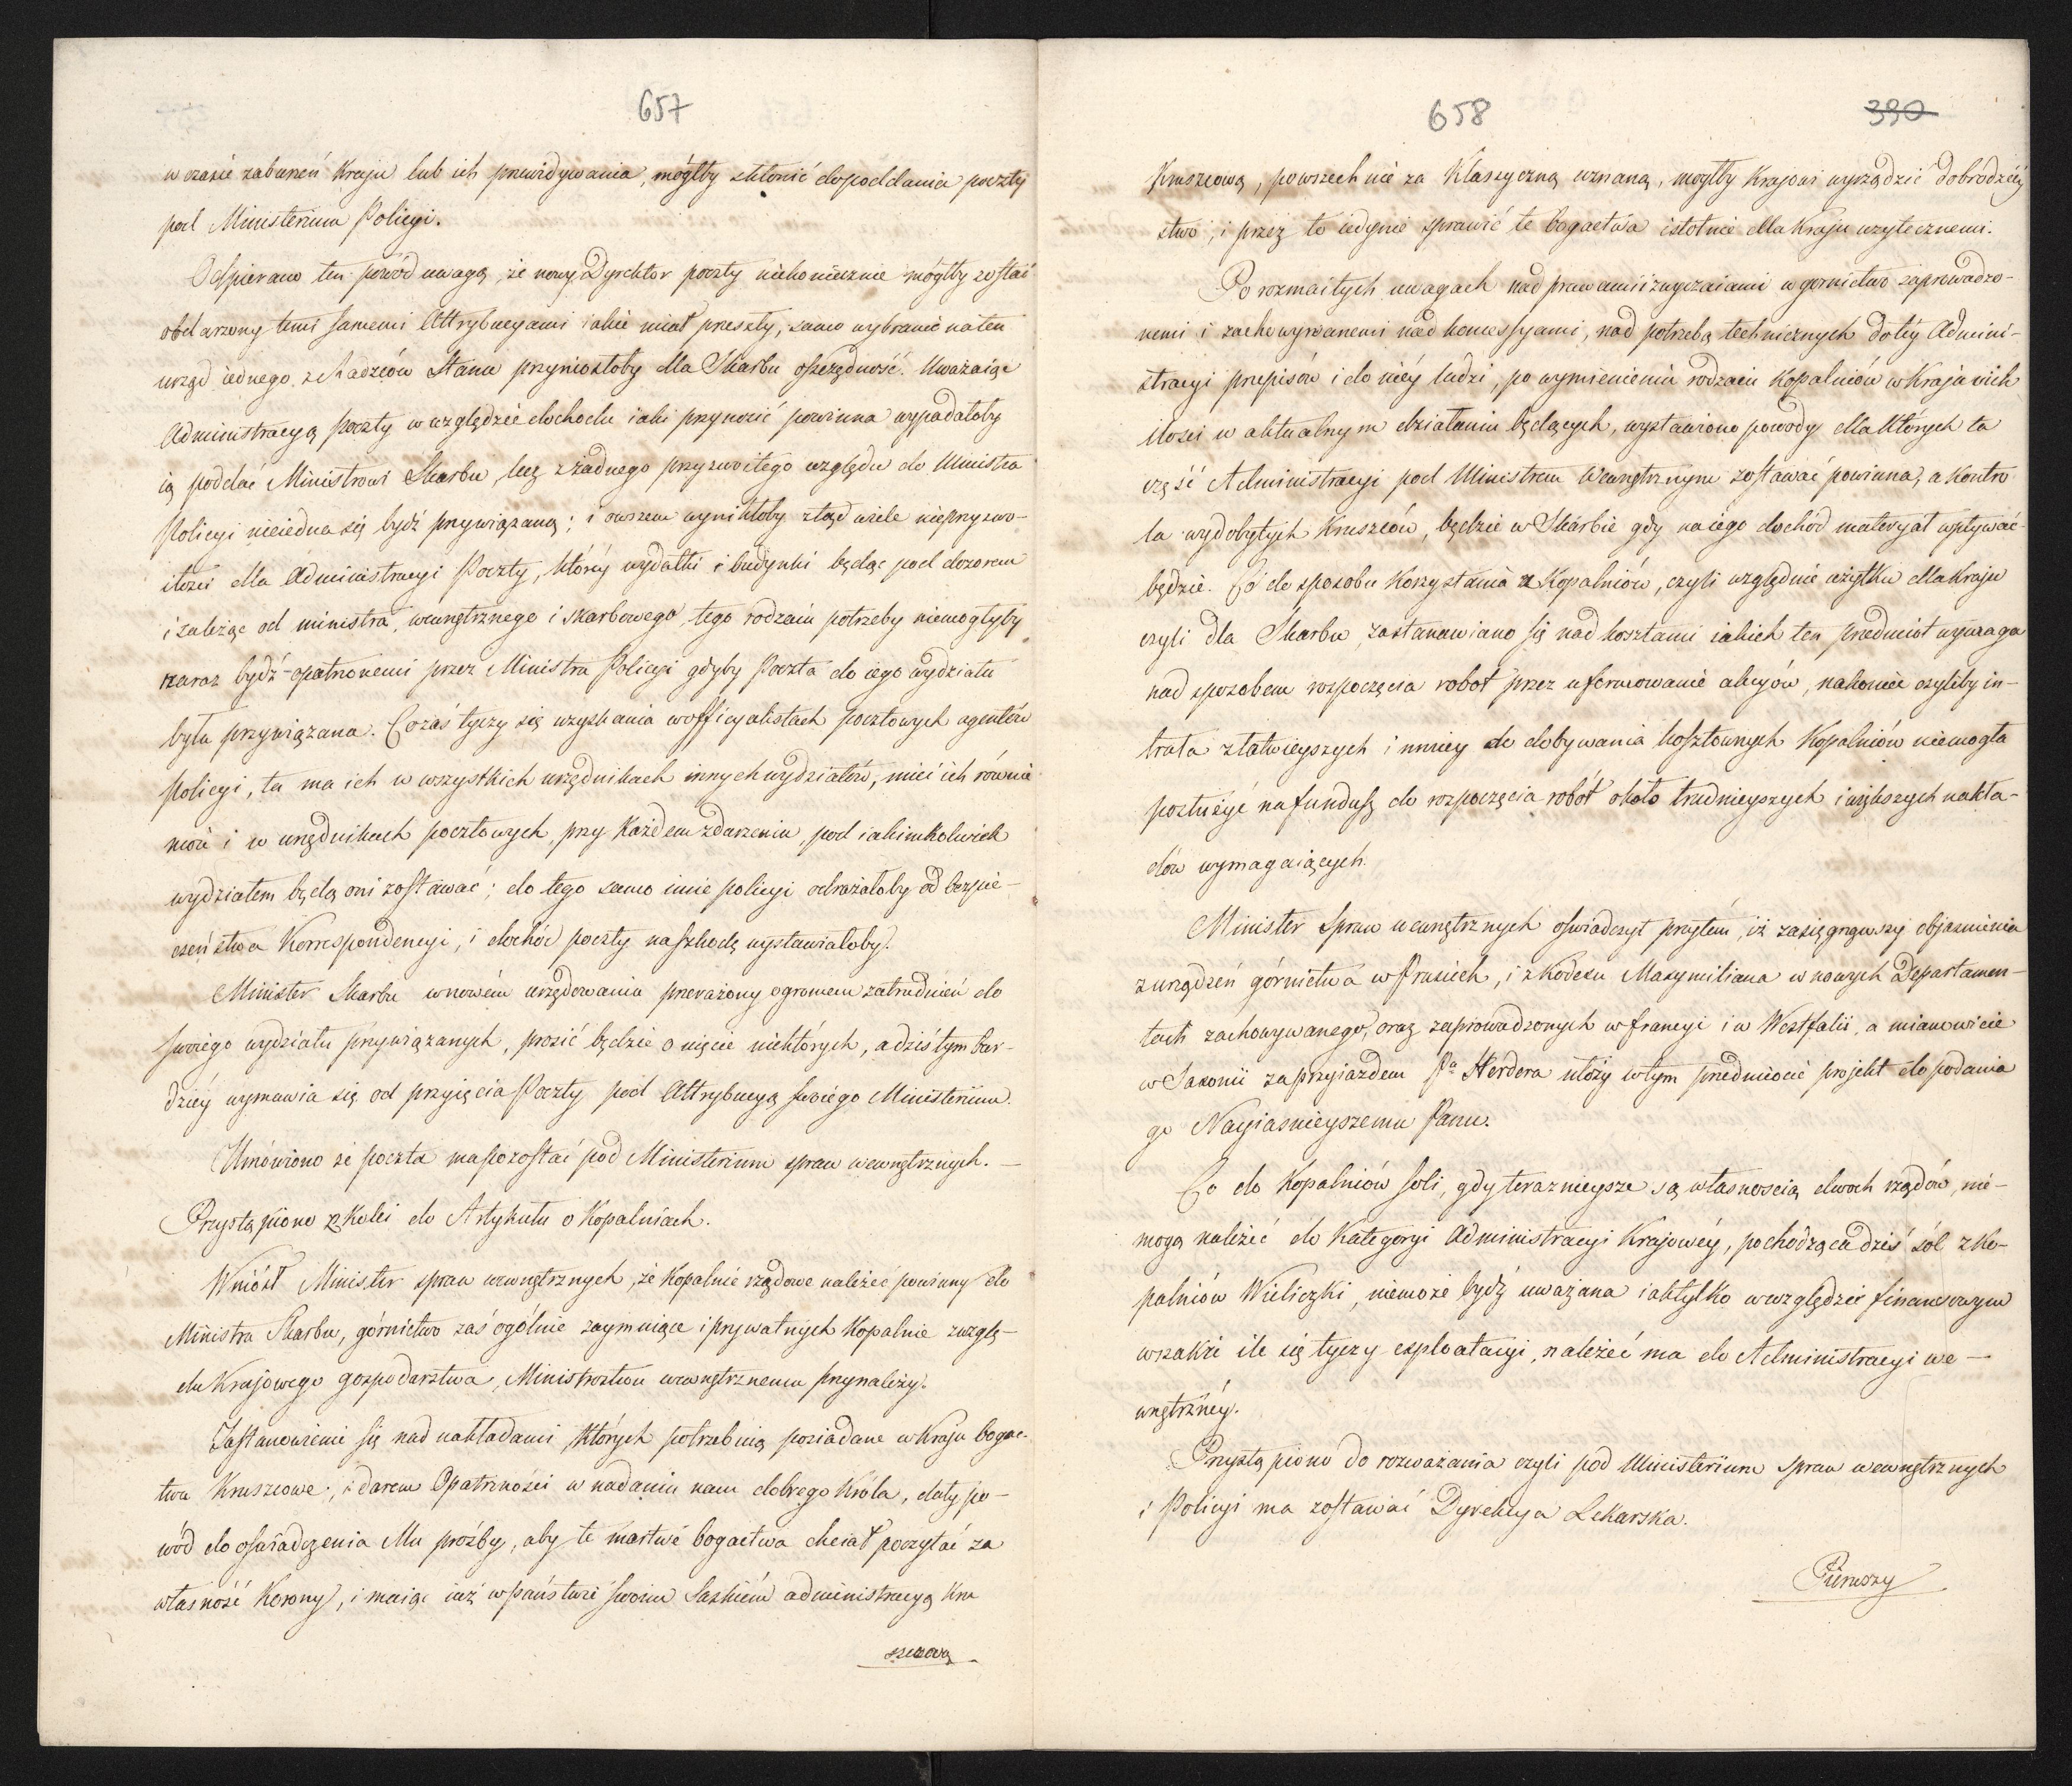 657
w czasie zaburzeń Kraju lub ich przewidywania, mógłby skłonić do poddania poczty
pod Ministerium Policyi.
Odpierano ten powód uwagą, że nowy Dyrektor poczty niekoniecznie mógłby zostać
obdarzony temi samemi Attrybucyami iakie miał przeszły, samo wybranie na ten
urząd iednego z Radzców Stanu przyniosłoby dla Skarbu oszczędność. Uważaiąc
Administracyą poczty w względzie dochodu iaki przynosić powinna wypadałoby
ią poddać Ministrowi Skarbu, lecz z żadnego przyzwoitego względu do Ministra
Policyi nie iedna się bydź przywiązaną; i owszem wynikłoby ztąd wiele nieprzyzwo-
itości dla Administracyi Poczty, któréy wydatki i budynki będąc pod dozorem
i zależąc od ministra wewnętrznego i skarbowego, tego rodzaiu potrzeby niemogłyby
zaraz bydź opatronemi przez Ministra Policyi gdyby Poczta do iego wydziału
była przywiązana. Co zaś tyczy się uzyskania w officyalistach pocztowych agentów
policyi, ta ma ich w wszystkich urzędnikach innych wydziałów, mieć ich równie
może i w urzędnikach pocztowych, przy każdem zdarzeniu, pod iakimkolwiek
wydziałem będą oni zostawać; do tego samo imie policyi odrażałoby od bezpie-
czeństwa Korrespondencyi, i dochód poczty na szkodę wystawiałoby.
Minister Skarbu wnowém urzędowaniu przerażony ogromem zatrudnień do
swoiego wydziału przywiązanych, prosić będzie o uięcie niektórych, a dziś tym bar-
dziéy wymawia się od przyięcia Poczty pod Attrybucyą swoiego Ministerium.
Umówiono że poczta ma pozostać pod Ministerium spraw wewnętrznych. —
Przystąpiono z Kolei do Artykułu o Kopalniach.
Wniósł Minister spraw wewnętrznych, że Kopalnie rządowe należeć powinny do
Ministra Skarbu, górnictwo zaś ogólnie zaymuiące i prywatnych Kopalnie zwzglę-
du Krajowego gospodarstwa, Ministrostwu wewnętrznemu przynależy.
Zastanowienie się nad nakładami których potrzebuią posiadane w Kraju bogac-
twa Kruszcowe, i darem Opatrzności w nadaniu nam dobrego Króla, dały po-
wód do oświadczenia Mu prośby, aby te martwe bogactwa chciał poczytać za
własność Korony, i maiąc iuż w państwie swoim Saskiém administracyą Kru
szcową
658
390
Kruszcową, powszechnie za Klassyczną uznaną, mogłby Krajowi wyrządzić dobrodziéy
stwo, i przez to iedynie sprawić te bogactwa istotnie dla Kraju uzytecznemi.
Po rozmaitych uwagach nad prawami i zwyczaiami w gornictwo zaprowadzo-
nemi i zachowywanemi nad koncessyami, nad potrzebą technicznych do téy Admini-
stracyi przepisów i do niéy ludzi, po wymienieniu rodzaiu Kopalniów w Kraju i ich
ilości w aktualnym działaniu będących, wystawiono powody dla których ta
część Administracyi pod Ministrem Wewnętrznym zostawać powinna, a kontro
la wydobytych Kruszców, będzie w Skarbie gdy na iego dochód materyał wpływać
będzie. Co do sposobu korzystania z Kopalniów, czyli względnie użytku dla Kraju
czyli dla Skarbu, zastanawiano się nad kosztami iakich ten przedmiot wymaga
nad sposobem rozpoczęcia robot przez uformowanie akcyów, nakoniec czyliby in-
trata z łatwieyszych i mniey do dobywania kosztownych Kopalniów niemogła
posłużyć na fundusz do rozpoczęcia robót około trudnieyszych i większych nakła-
dów wymagaiących.
Minister spraw wewnętrznych oświadczył przytém, iż zasięgnąwszy objasnienia
z urządzeń górnictwa w Prusiech, i z Kodexu Maxymiliana w nowych Departamen-
tach zachowywanego, oraz zaprowadzonych w Francyi i w Westfalii, a mianowicie
w Saxonii za przyiazdem Pa Herdera ułoży w tym przedmiocie projekt do podania
go Nayiasnieyszemu Panu.
Co do Kopalniów soli, gdy teraznieysze są własnoscią dwoch rządów, nie-
mogą należéć do Kategoryi Administracyi Krajowéy, pochodząca dziś sól z Ko-
palniów Wieliczki, niemoże bydź uważana iak tylko w względzie finansowym
wszakże ile się tyczy exploatacyi, należeć ma do Administracyi we-
wnętrznéy.
Przystąpiono do rozważania czyli pod Ministerium spraw wewnętrznych
i Policyi ma zostawać Dyrekcya Lekarska.
Pierwszy